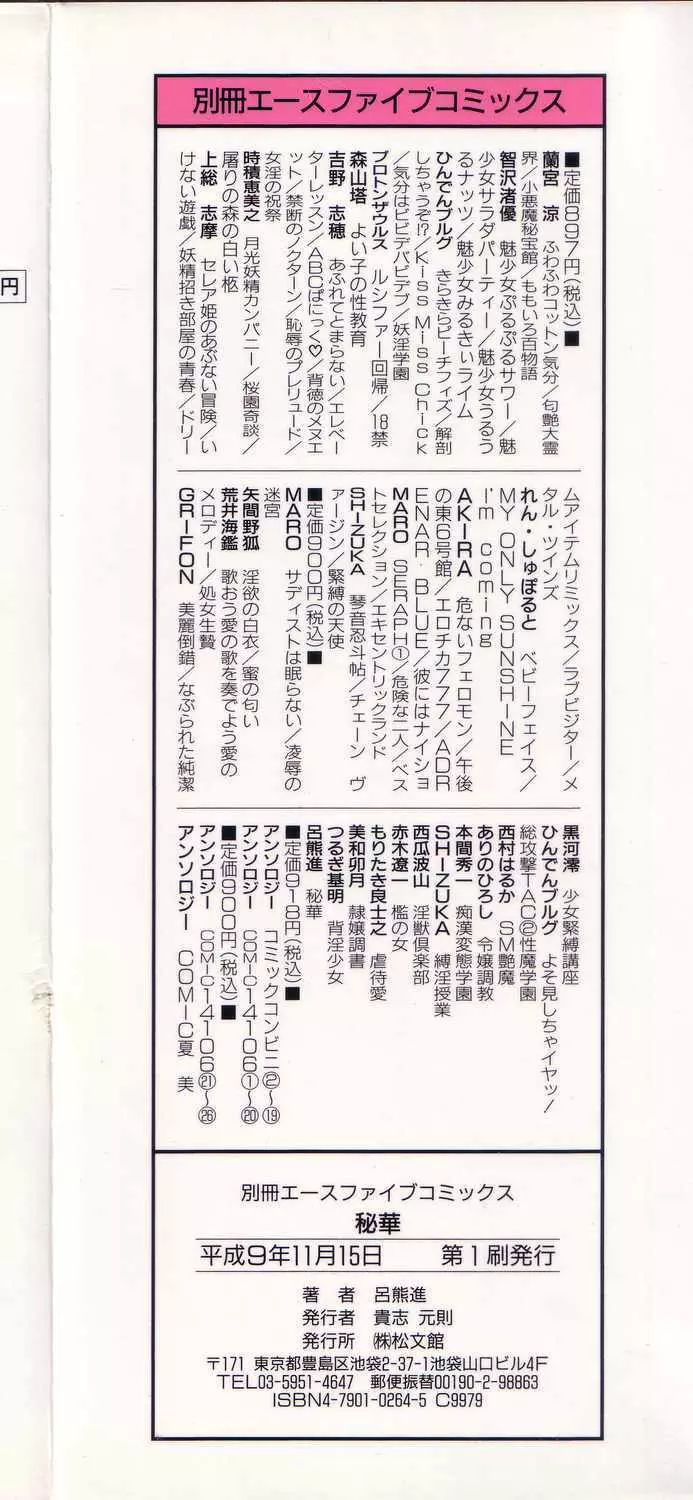 円
別冊エースファイブコミックス
■定価897円(税込)■
蘭宮 涼 ふわふわコットン気分/匂艶大霊
界/小悪魔秘宝館/ももいろ百物語
智沢渚優 魅少女ぷるぷるサワー/魅
少女サラダパーティー/魅少女うるう
るナッツ/魅少女みるきぃライム
ひんでんブルグ きらきらピーチフィズ/解剖
しちゃうぞ!?/Kiss Miss Chick
/気分はビビデバビデブ/妖淫学園
プロトンザウルス ルシファー回帰/18禁
森山塔 よい子の性教育
吉野 志穂 あふれてとまらない/エレベー
ターレッスン/ABCぱにっく♡/背徳のメヌエ
ット/禁断のノクターン/恥辱のプレリュード/
女淫の祝祭
時積恵美之 月光妖精カンパニー/桜園奇談/
屠りの森の白い柩
上総 志摩 セレア姫のあぶない冒険/い
けない遊戯/妖精招き部屋の青春/ドリー
ムアイテムリミックス/ラブビジター/メ
タル・ツインズ
れん・しゅぽると ベビーフェイス/
MY ONLY SUNSHINE
I'm coming
AKIRA 危ないフェロモン/午後
の東6号館/エロチカ777/ADR
ENAR BLUE/彼にはナイショ
MARO SERAPH①/危険な二人/ベス
トセレクション/エキセントリックランド
SHIZUKA 琴音忍斗帖/チェーン ヴ
ァージン/緊縛の天使
■定価900円(税込)■
MARO サディストは眠らない/凌辱の
迷宮
矢間野狐 淫欲の白衣/蜜の匂い
荒井海鑑 歌おう愛の歌を奏でよう愛の
メロディー/処女生贄
GRIFON 美麗倒錯/なぶられた純潔
黒河澪 少女緊縛講座
ひんでんブルグ よそ見しちゃイヤッ!
総攻撃TAC②性魔学園
西村はるか SM艶魔
ありのひろし 令嬢調教
本間秀一 痴漢変態学園
SHIZUKA 縛淫授業
西瓜波山 淫獣倶楽部
赤木遼一 檻の女
もりたき良士之 虐待愛
美和卯月 隷嬢調書
つるぎ基明 背淫少女
呂熊進 秘華
■定価918円(税込)■
アンソロジー コミックコンビニ②~⑲
アンソロジー COMIC14106①~⑳
■定価900円(税込)■
アンソロジー COMIC14106㉑~㉖
アンソロジー COMIC夏 美
別冊エースファイブコミックス
秘華
平成9年11月15日 第1刷発行
著 者 呂熊進
発行者 貴志 元則
発行所 ㈱松文館
〒171 東京都豊島区池袋2-37-1池袋山口ビル4F
TEL03-5951-4647 郵便振替00190-2-98863
ISBN4-7901-0264-5 C9979